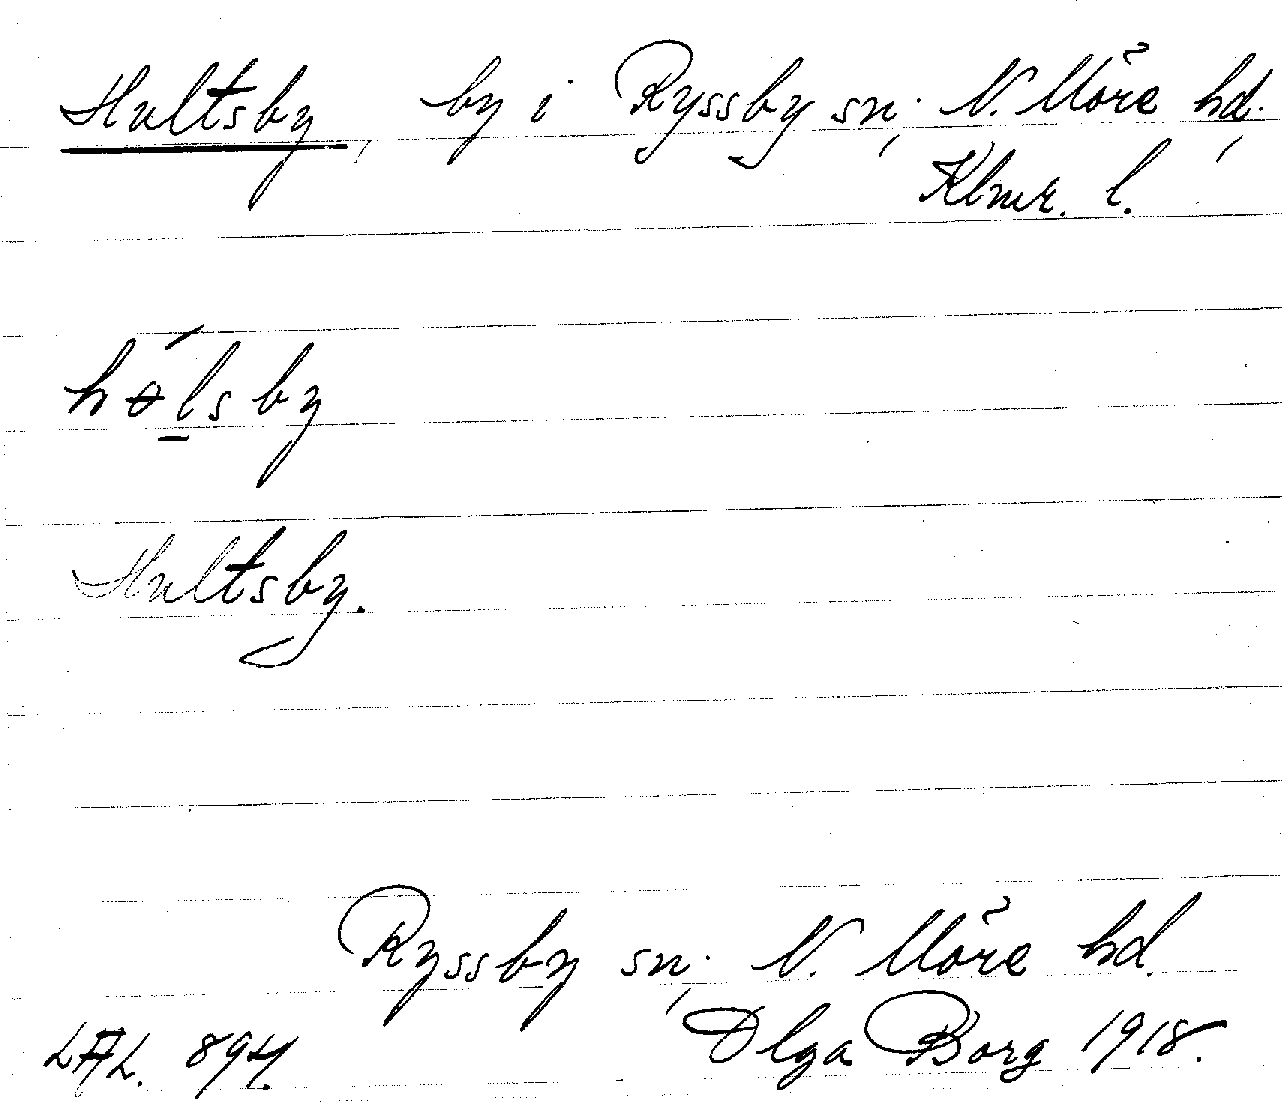 Hultsby, by i Ryssby sn; N. Möre hd;
Klmr. l.
hө́l̲sby
Hultsby.
Ryssby sn; N. Möre hd.
LAL. 894. Olga Borg 1918.